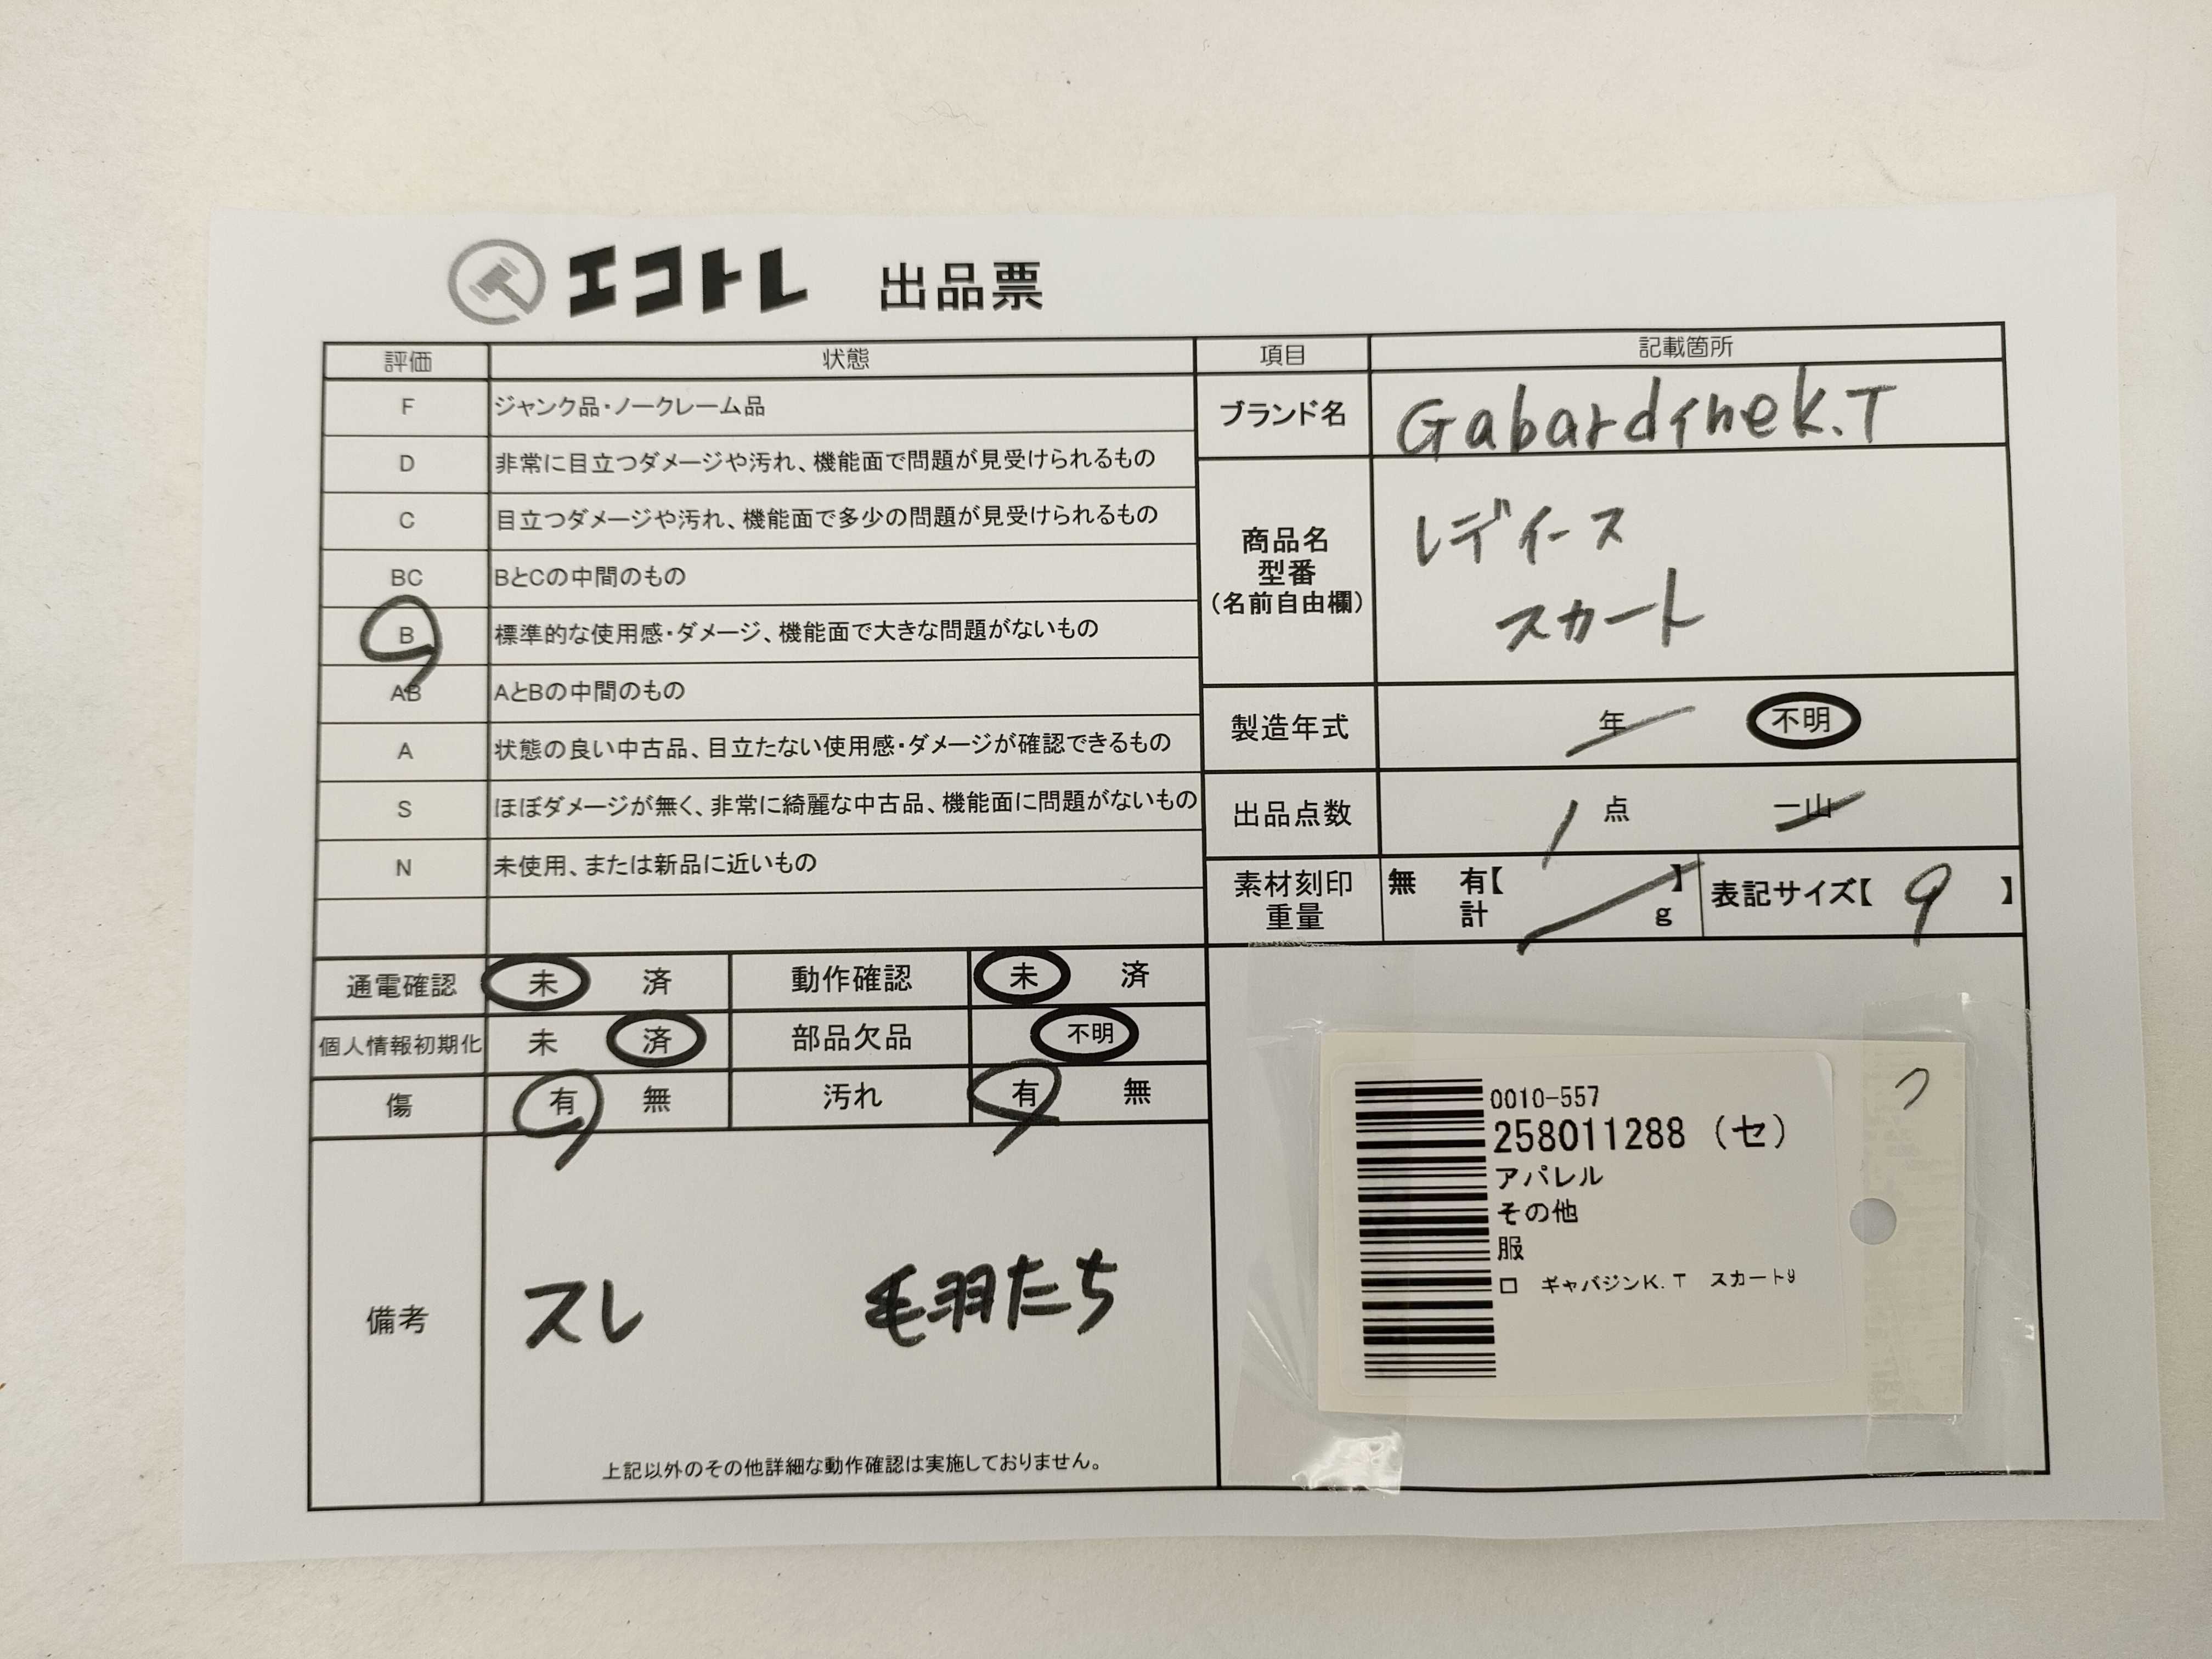 エコトレ 出品票
評価 状態 項目 記載箇所
F ジャンク品・ノークレーム品
D 非常に目立つダメージや汚れ、機能面で問題が見受けられるもの
C 目立つダメージや汚れ、機能面で多少の問題が見受けられるもの
BC BとCの中間のもの
B 標準的な使用感・ダメージ、機能面で大きな問題がないもの
AB AとBの中間のもの
A 状態の良い中古品、目立たない使用感・ダメージが確認できるもの
S ほぼダメージが無く、非常に綺麗な中古品、機能面に問題がないもの
N 未使用、または新品に近いもの
ブランド名 Gabardinek.T
商品名
型番
(名前自由欄)
レディース
スカート
製造年式 年 不明
出品点数 1 点 一山
素材刻印
重量
無 有【 】
計 g
表記サイズ【 9 】
通電確認 未 済 動作確認 未 済
個人情報初期化 未 済 部品欠品 不明
傷 有 無 汚れ 有 無
備考 スレ 毛羽たち
上記以外のその他詳細な動作確認は実施しておりません。
0010-557
258011288 (セ)
アパレル
その他
服
ロ ギャバジンK.T スカート9